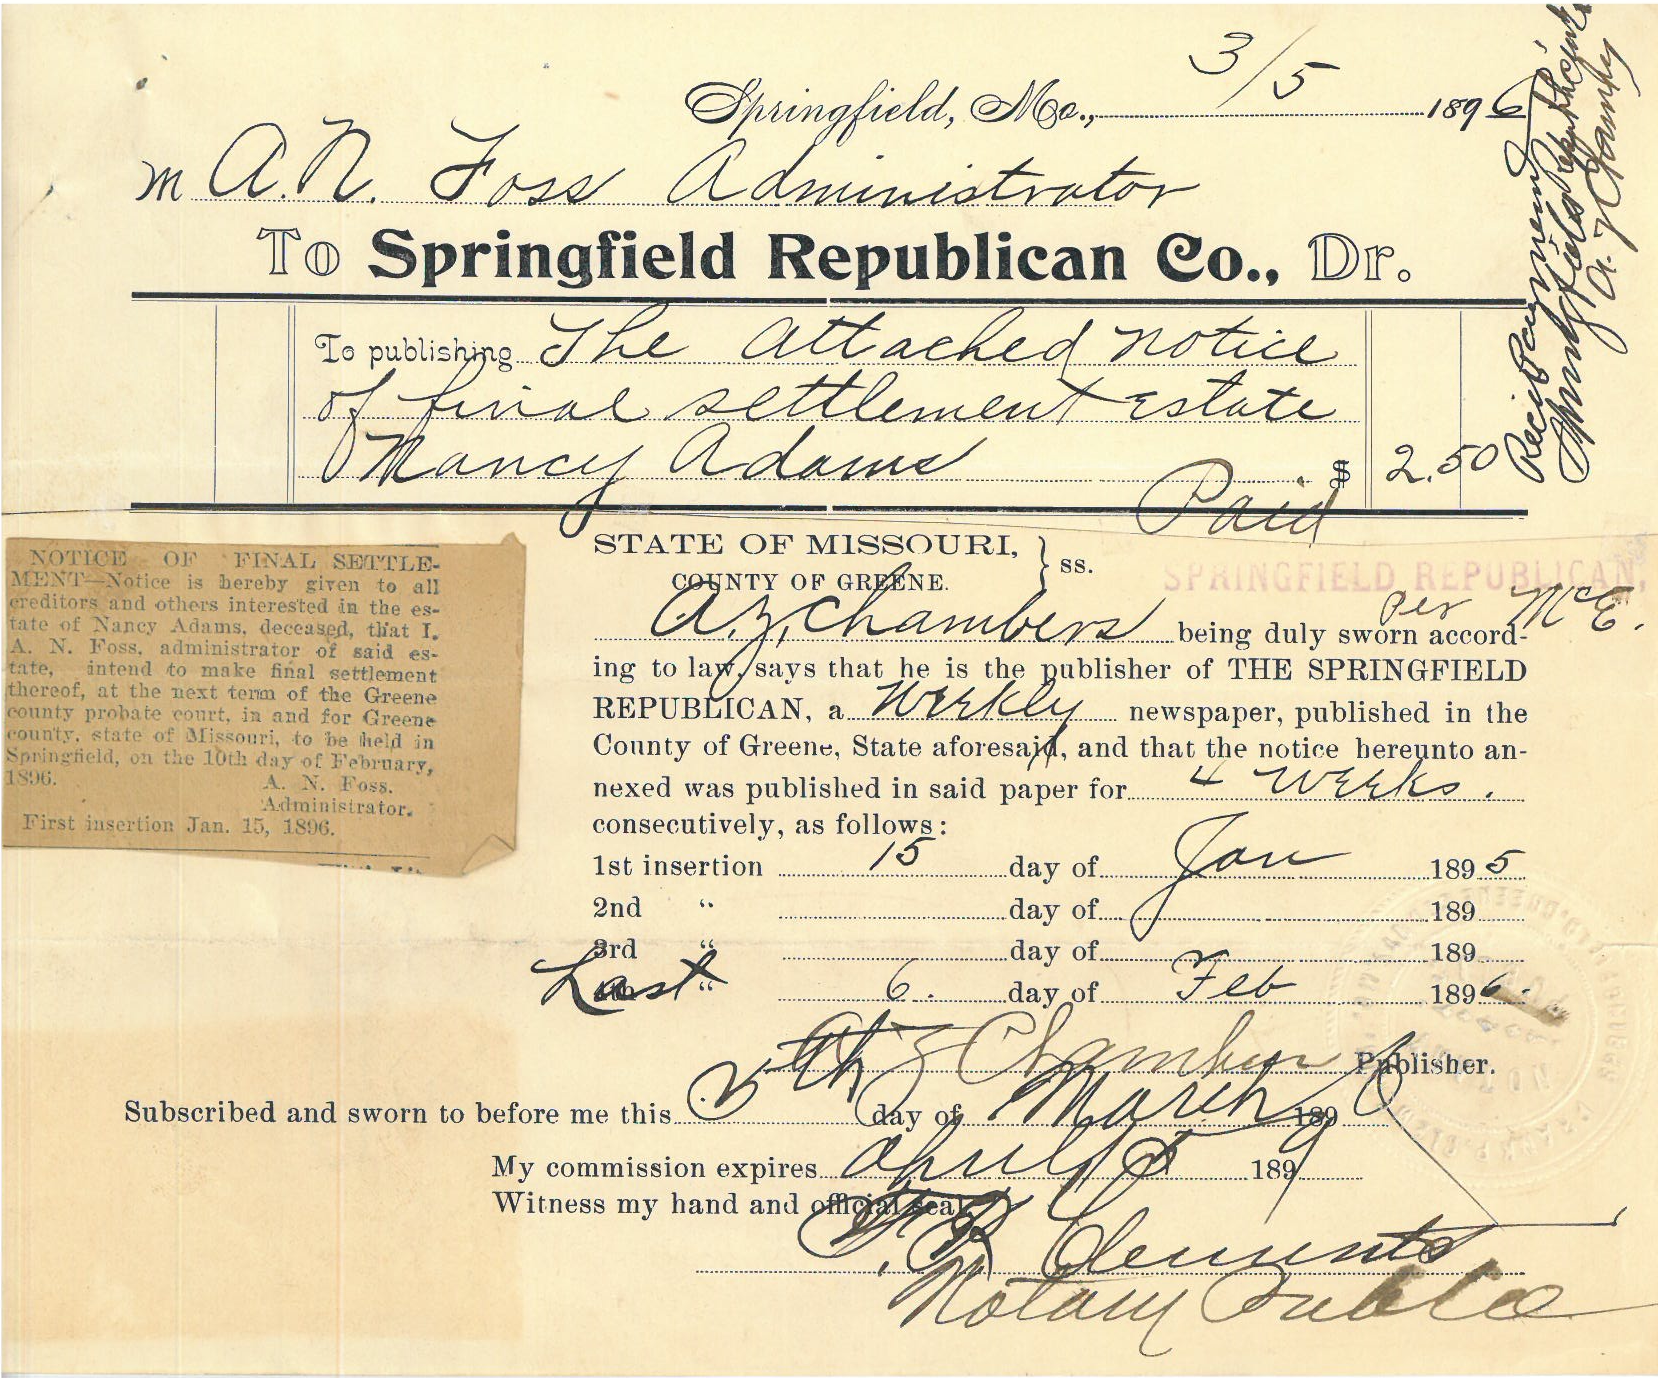 Springfield, Mo., 3/5 1896
M A. N. Foss Administrator
To Springfield Republican Co., Dr.
To publishing The Attached Notice
of final settlement Estate
Nancy Adams $ 2.50
Paid
Springfield Republican
NOTICE OF FINAL SETTLE-
MENT—Notice is hereby given to all
creditors and others interested in the es-
tate of Nancy Adams, deceased, that I,
A. N. Foss, administrator of said es-
tate, intend to make final settlement
thereof, at the next term of the Greene
county probate court, in and for Greene
county, state of Missouri, to be held in
Springfield, on the 10th day of February,
1896. A. N. Foss.
Administrator.
First insertion Jan. 15, 1896.
STATE OF MISSOURI,
COUNTY OF GREENE. } ss.
SPRINGFIELD REPUBLICAN,
per McE.
A. Z. Chambers being duly sworn accord-
ing to law, says that he is the publisher of THE SPRINGFIELD
REPUBLICAN, a Weekly newspaper, published in the
County of Greene, State aforesaid, and that the notice hereunto an-
nexed was published in said paper for 4 weeks.
consecutively, as follows:
1st insertion 15 day of Jan 1895
2nd “ day of 189
3rd “ day of 189
Last “ 6. day of Feb 1896.
A Z Chambers Publisher.
Subscribed and sworn to before me this 5th day of March 1896
My commission expires April 5 1899
Witness my hand and official seal
Clements
Notary Public